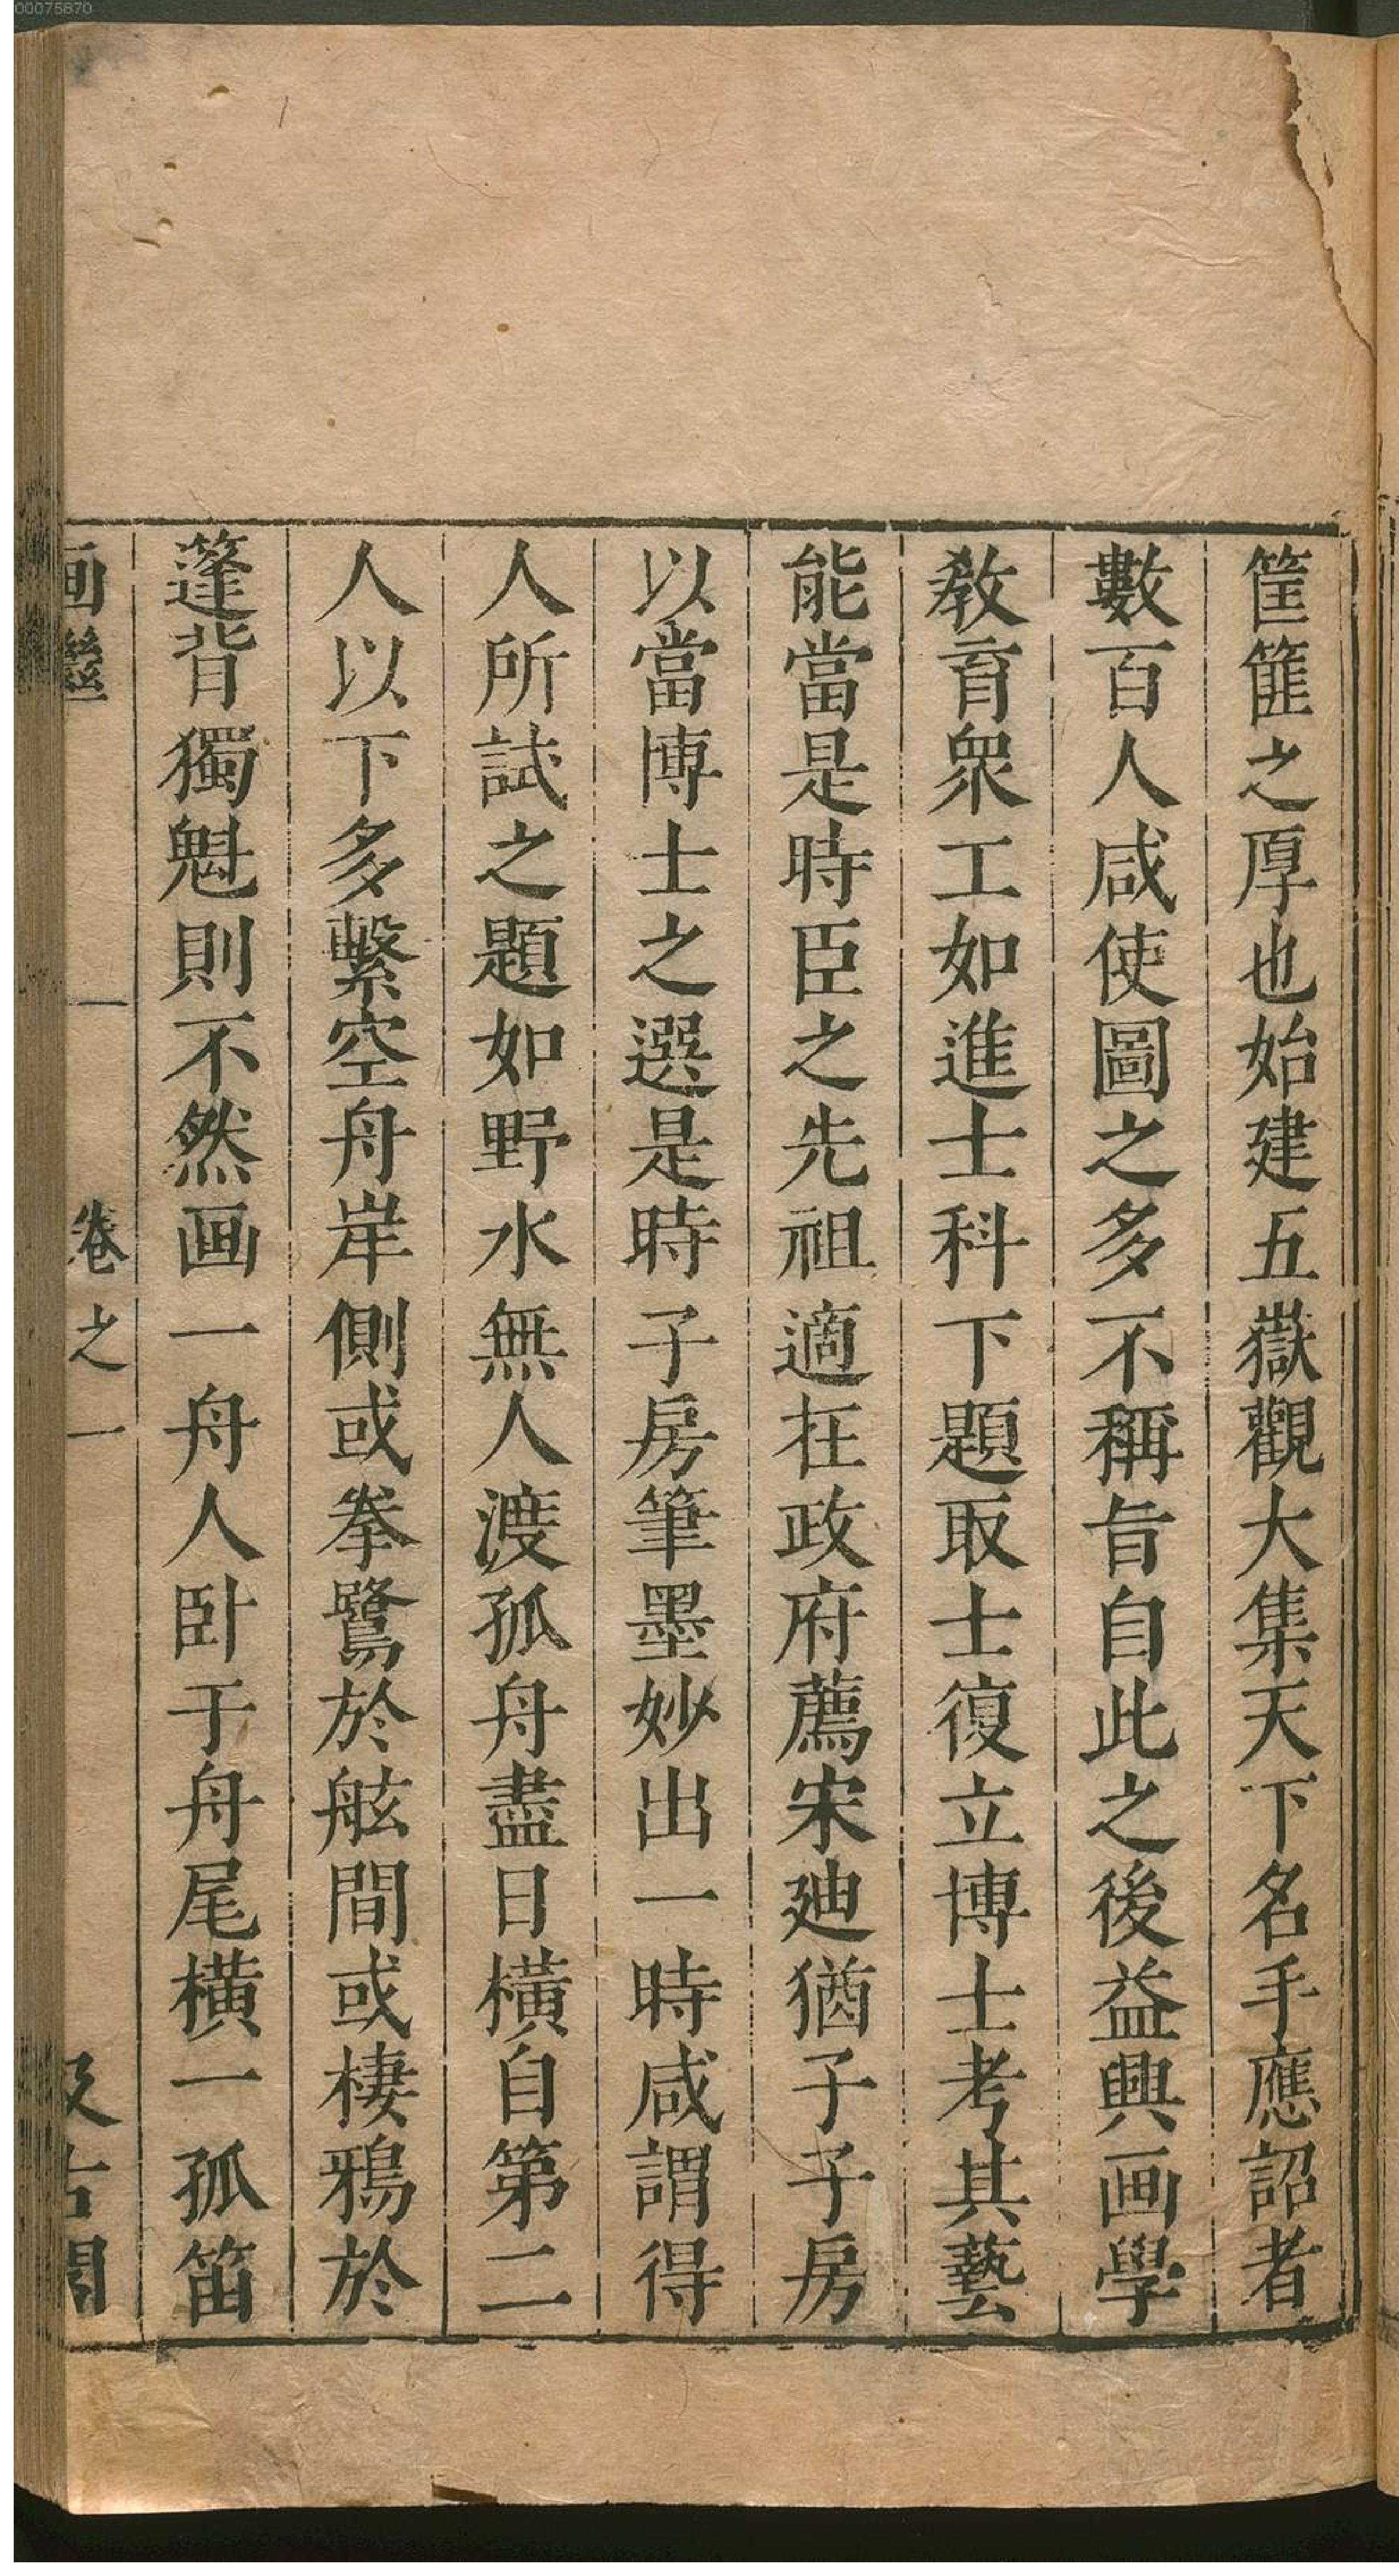 00075870
筐篚之厚也始建五嶽觀大集天下名手應詔者
數百人咸使圖之多不稱旨自此之後益興画學
敎育衆工如進士科下題取士復立博士考其藝
能當是時臣之先祖適在政府薦宋廸猶子子房
以當博士之選是時子房筆墨妙出一時咸謂得
人所試之題如野水無人渡孤舟盡日橫自第二
人以下多繫空舟岸側或拳鷺於舷間或棲鴉於
篷背獨魁則不然画一舟人卧于舟尾橫一孤笛
画繼 一 卷之一 汲古閣